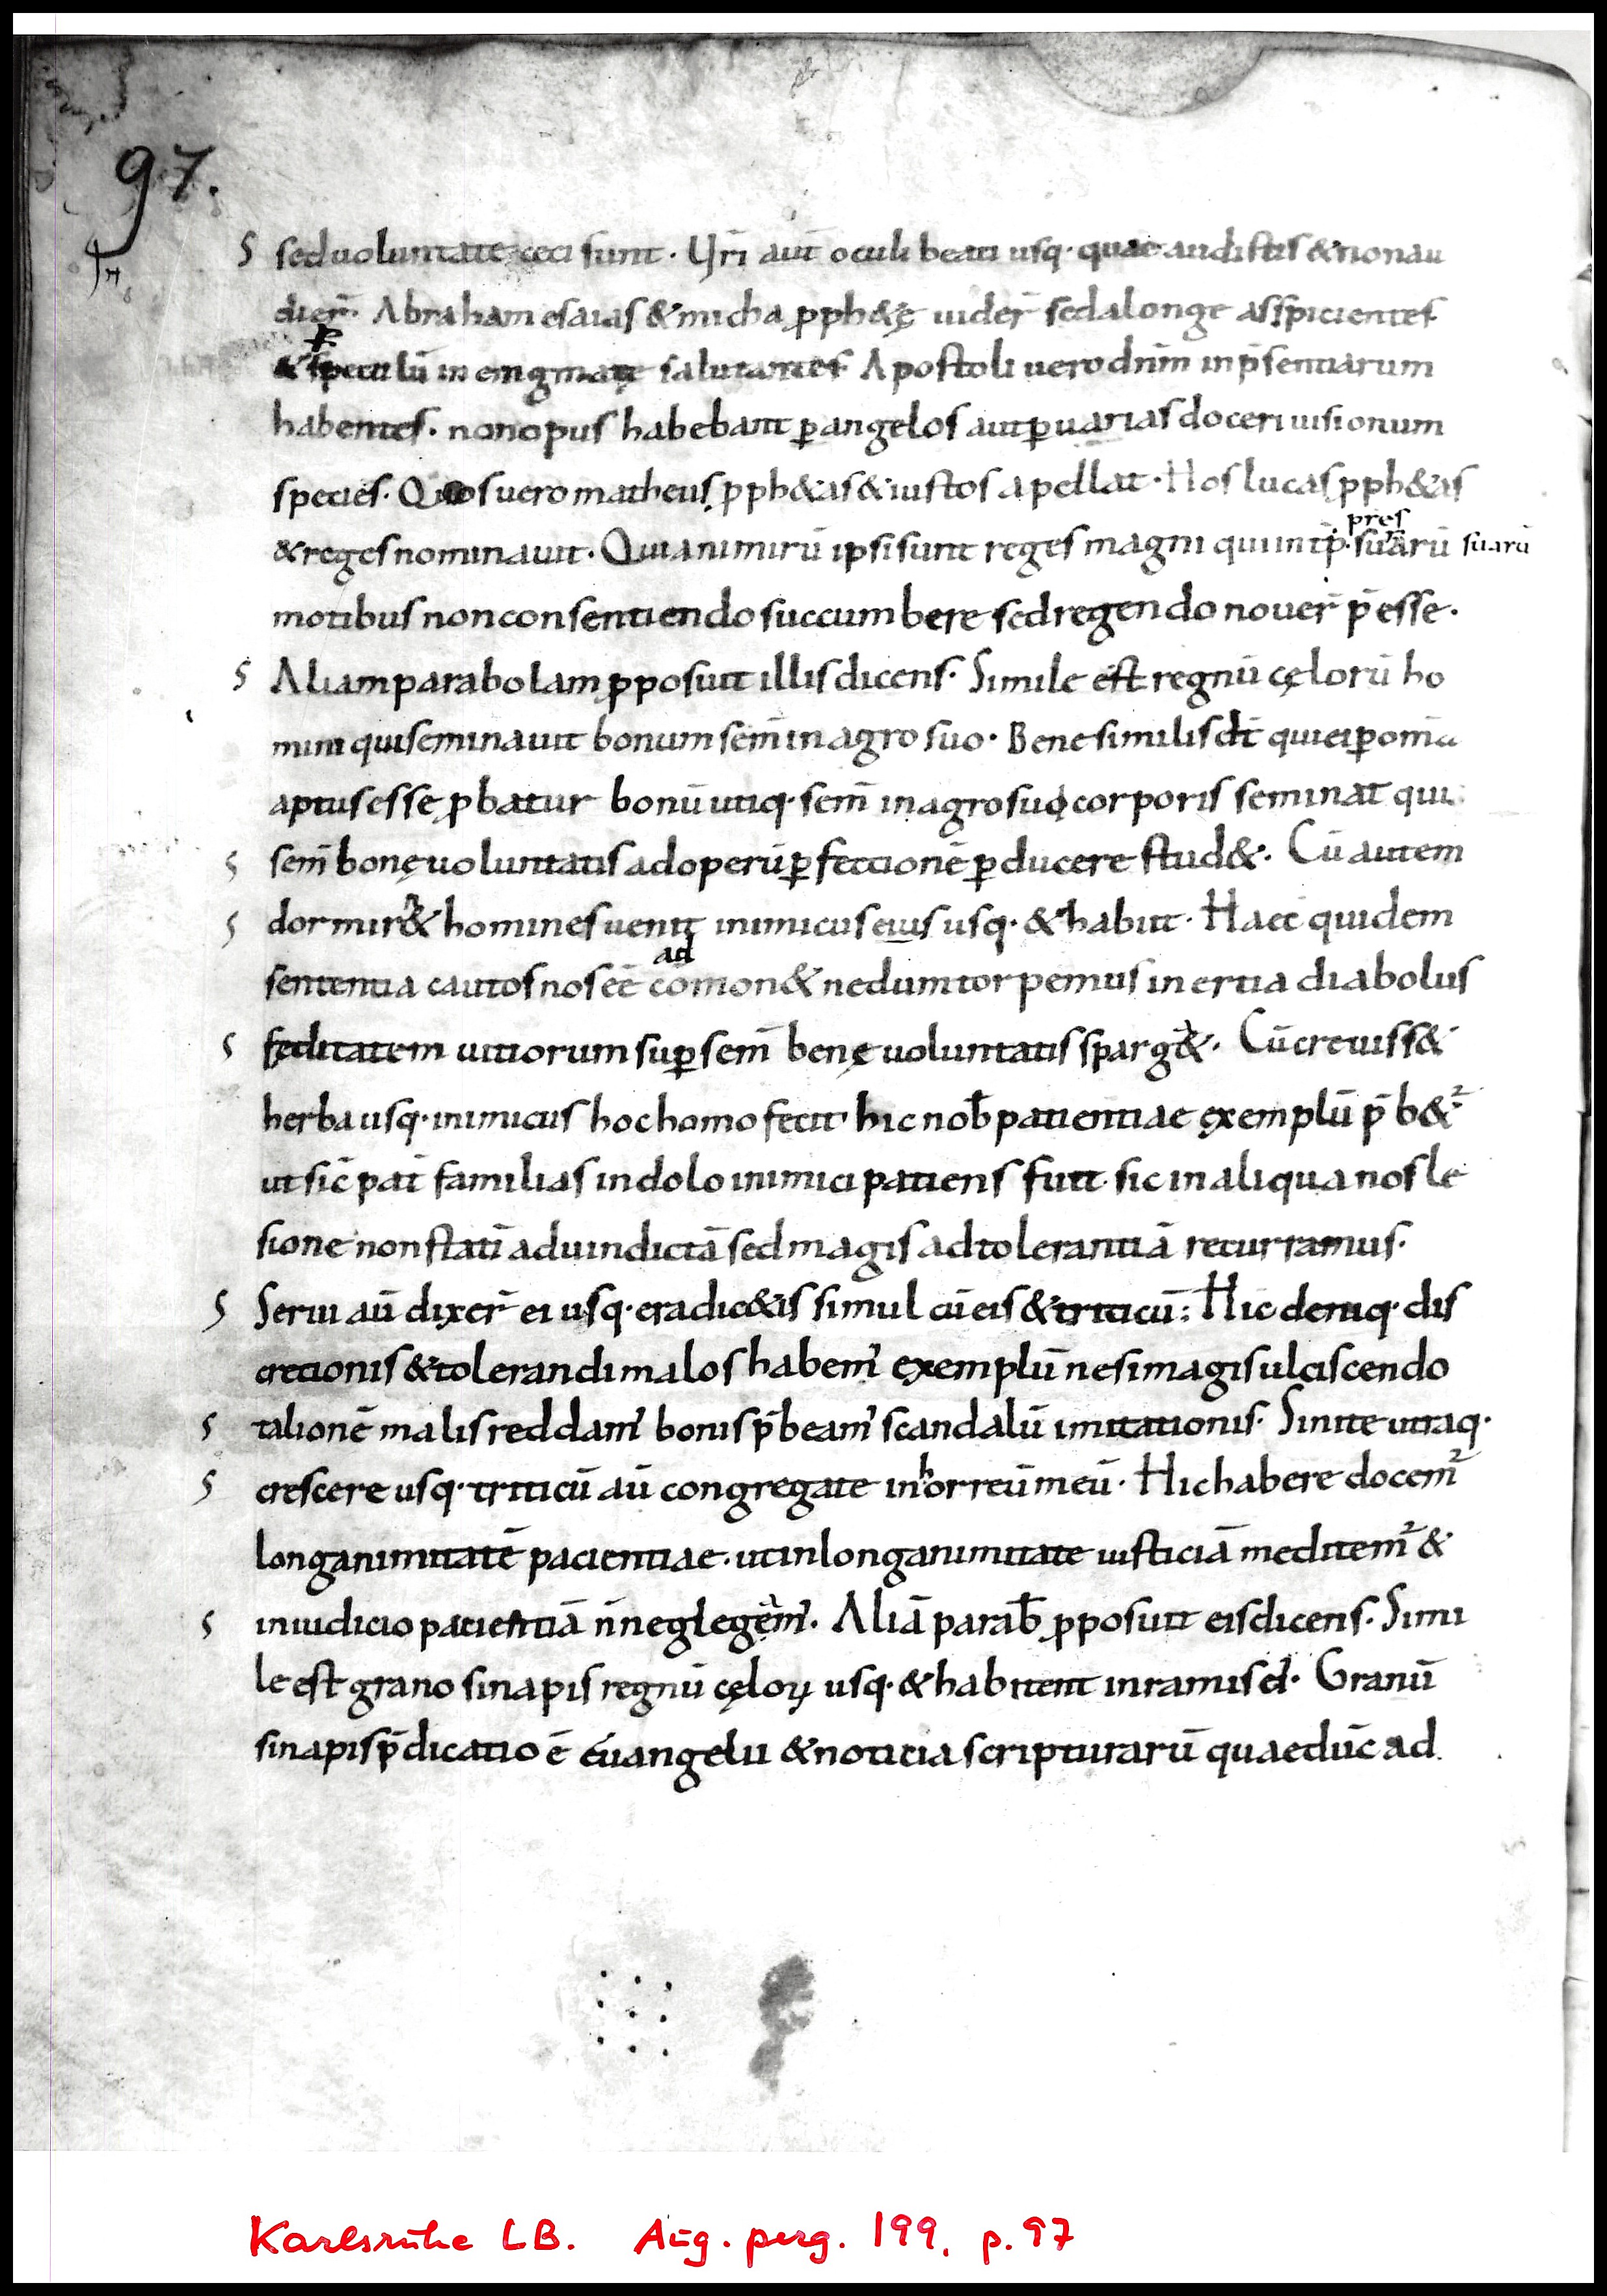 97.
sed uoluntate ceci sunt · Ur̄i aut̄ oculi beati usq· quae audistis & non au
dier̄· Abraham esaias & micha ꝓph&ę uider̄ sed a longe asspicientes
& ꝑ speculū in enigmate salutantes· Apostoli uero dn̄m in p̄sentiarum
habentes· non opus habebant ꝑ angelos aut ꝑ uarias doceri uisionum
species· Quos uero matheus ꝓph&as & iustos apellat· Hos lucas ꝓph&as
& reges nominauit· Quia nimirū ipsi sunt reges magni qui in tp̄· pres suarū suarū
motibus non consentiendo succumbere sed regendo nouer̄ p̄esse·
Aliam parabolam ꝓposuit illis dicens· Simile est regnū cęlorū ho
mini qui seminauit bonum sem̄ in agro suo· Bene similis dr̄ qui ei ꝑ om̄ia
aptus esse ꝓbatur bonū utiq· sem̄ in agro sui corporis seminat qui
sem̄ bonę uoluntatis ad operū ꝑfectionē ꝑducere stud&· Cū autem
dormir&n̄ homines uenit inimicus eius usq· & habiit· Haec quidem
sententia cautos nos eē com̄on& ad ne dum torpemus inertia diabolus
feditatem uitiorum suꝑ sem̄ bene uoluntatis sparg&· Cū creuiss&
herba usq· inimicus hoc homo fecit· hic nob̄ patientiae exemplū p̄b&ˀ
ut sic̄ pat̄ familias in dolo inimici patiens fuit· sic in aliqua nos le
sione non statī ad uindictā sed magis ad tolerantiā recurramus·
Serui aū dixer̄ ei usq· eradic&is simul cū eis & triticū; Hic deniq· dis
cretionis & tolerandi malos habem' exemplū ne si magis ulciscendo
talionē malis reddam' bonis p̄beam' scandalū imitationis· Sinite utraq·
crescere usq· triticū aū congregate in horreū meū· Hic habere docemˀ
longanimitatē pacientiae· ut in longanimitate iusticiā meditemˀ &
in iudicio pacientiā n̄ neglegem'· Aliā parab̄ ꝓposuit eis dicens· Simi
le est grano sinapis regnū cęloꝝ usq· & habitent in ramis ei'· Granū
sinapis p̄dicatio ē euangelii & noticia scripturarū quae duc̄ ad
Karlsruhe LB. Aug. perg. 199, p. 97